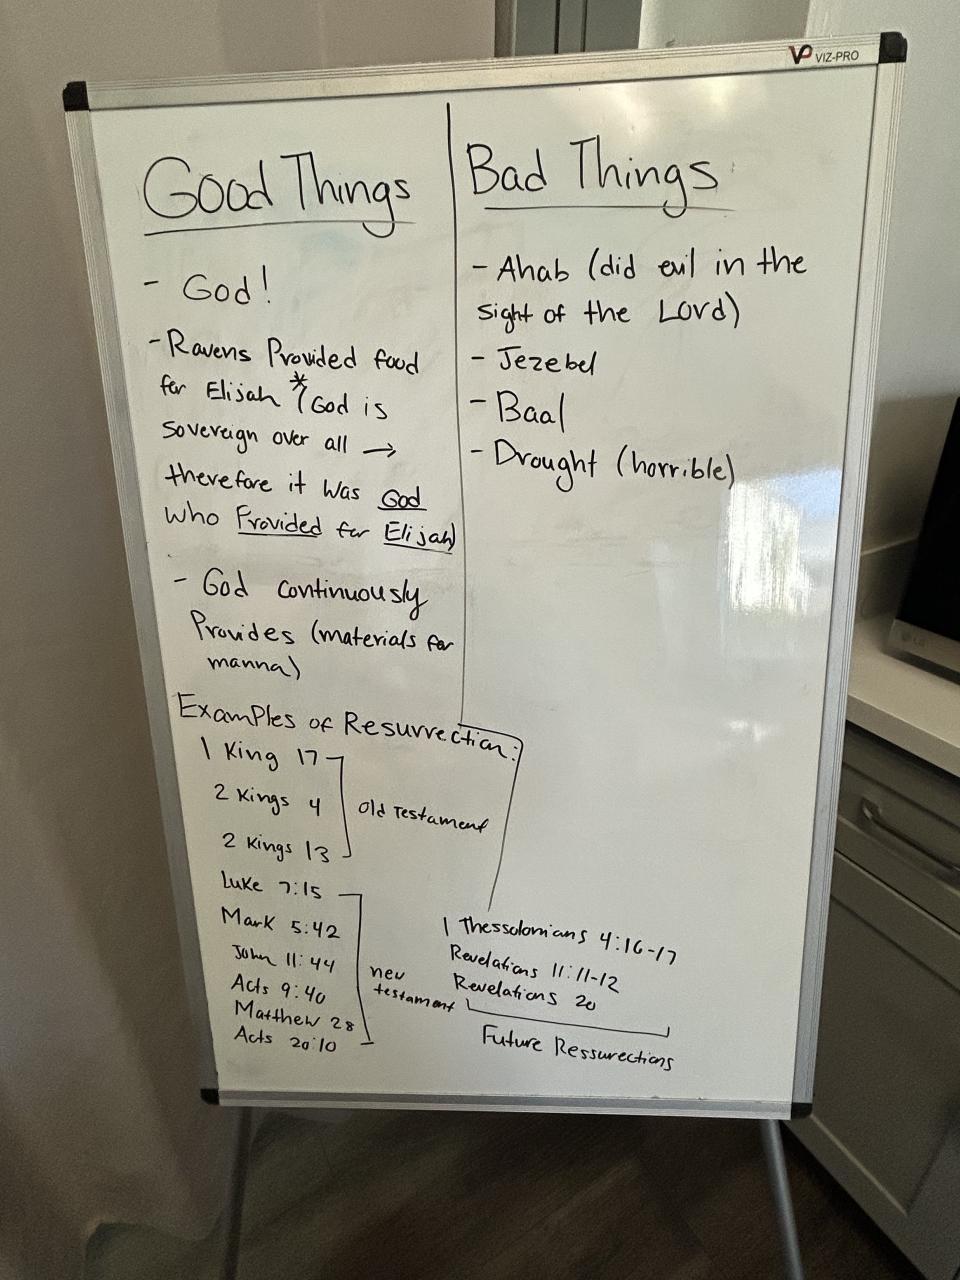 VP VIZ-PRO
Good Things
- God!
- Ravens Provided food
for Elijah *(God is
sovereign over all →
therefore it was God
who Provided for Elijah)
- God continuously
Provides (materials for
manna)
Bad Things
- Ahab (did evil in the
sight of the Lord)
- Jezebel
- Baal
- Drought (horrible)
Examples of Resurrection:
1 King 17
2 Kings 4
2 Kings 13
Old Testament
Luke 7:15
Mark 5:42
John 11:44
Acts 9:40
Matthew 28
Acts 20:10
new
testament
1 Thessolonians 4:16-17
Revelations 11:11-12
Revelations 20
Future Ressurections
LG